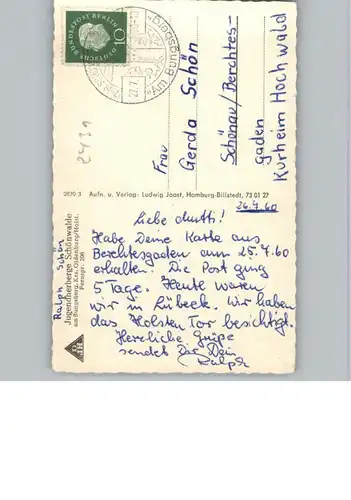 DEUTSCHE BUNDESPOST BERLIN
10
"Am Bungsberg"
2431
Frau
Gerda Schön
Schönau/Berchtes-
gaden
Kurheim Hochwald
2870/3 Aufn. u. Verlag: Ludwig Joost, Hamburg-Billstedt, 73 01 27
26.7.60
Liebe Mutti!
Habe Deine Karte aus
Berchtesgaden am 25.7.60
erhalten. Die Post ging
5 Tage. Heute waren
wir in Lübeck. Wir haben
das Holsten Tor besichtigt.
Herzliche Grüße
sendet Dir Dein
Ralph
Ralph Schön
Jugendherberge Schönwalde
am Bungsberg, Krs. Oldenburg/Holst.
Fernspr. 206
DJH